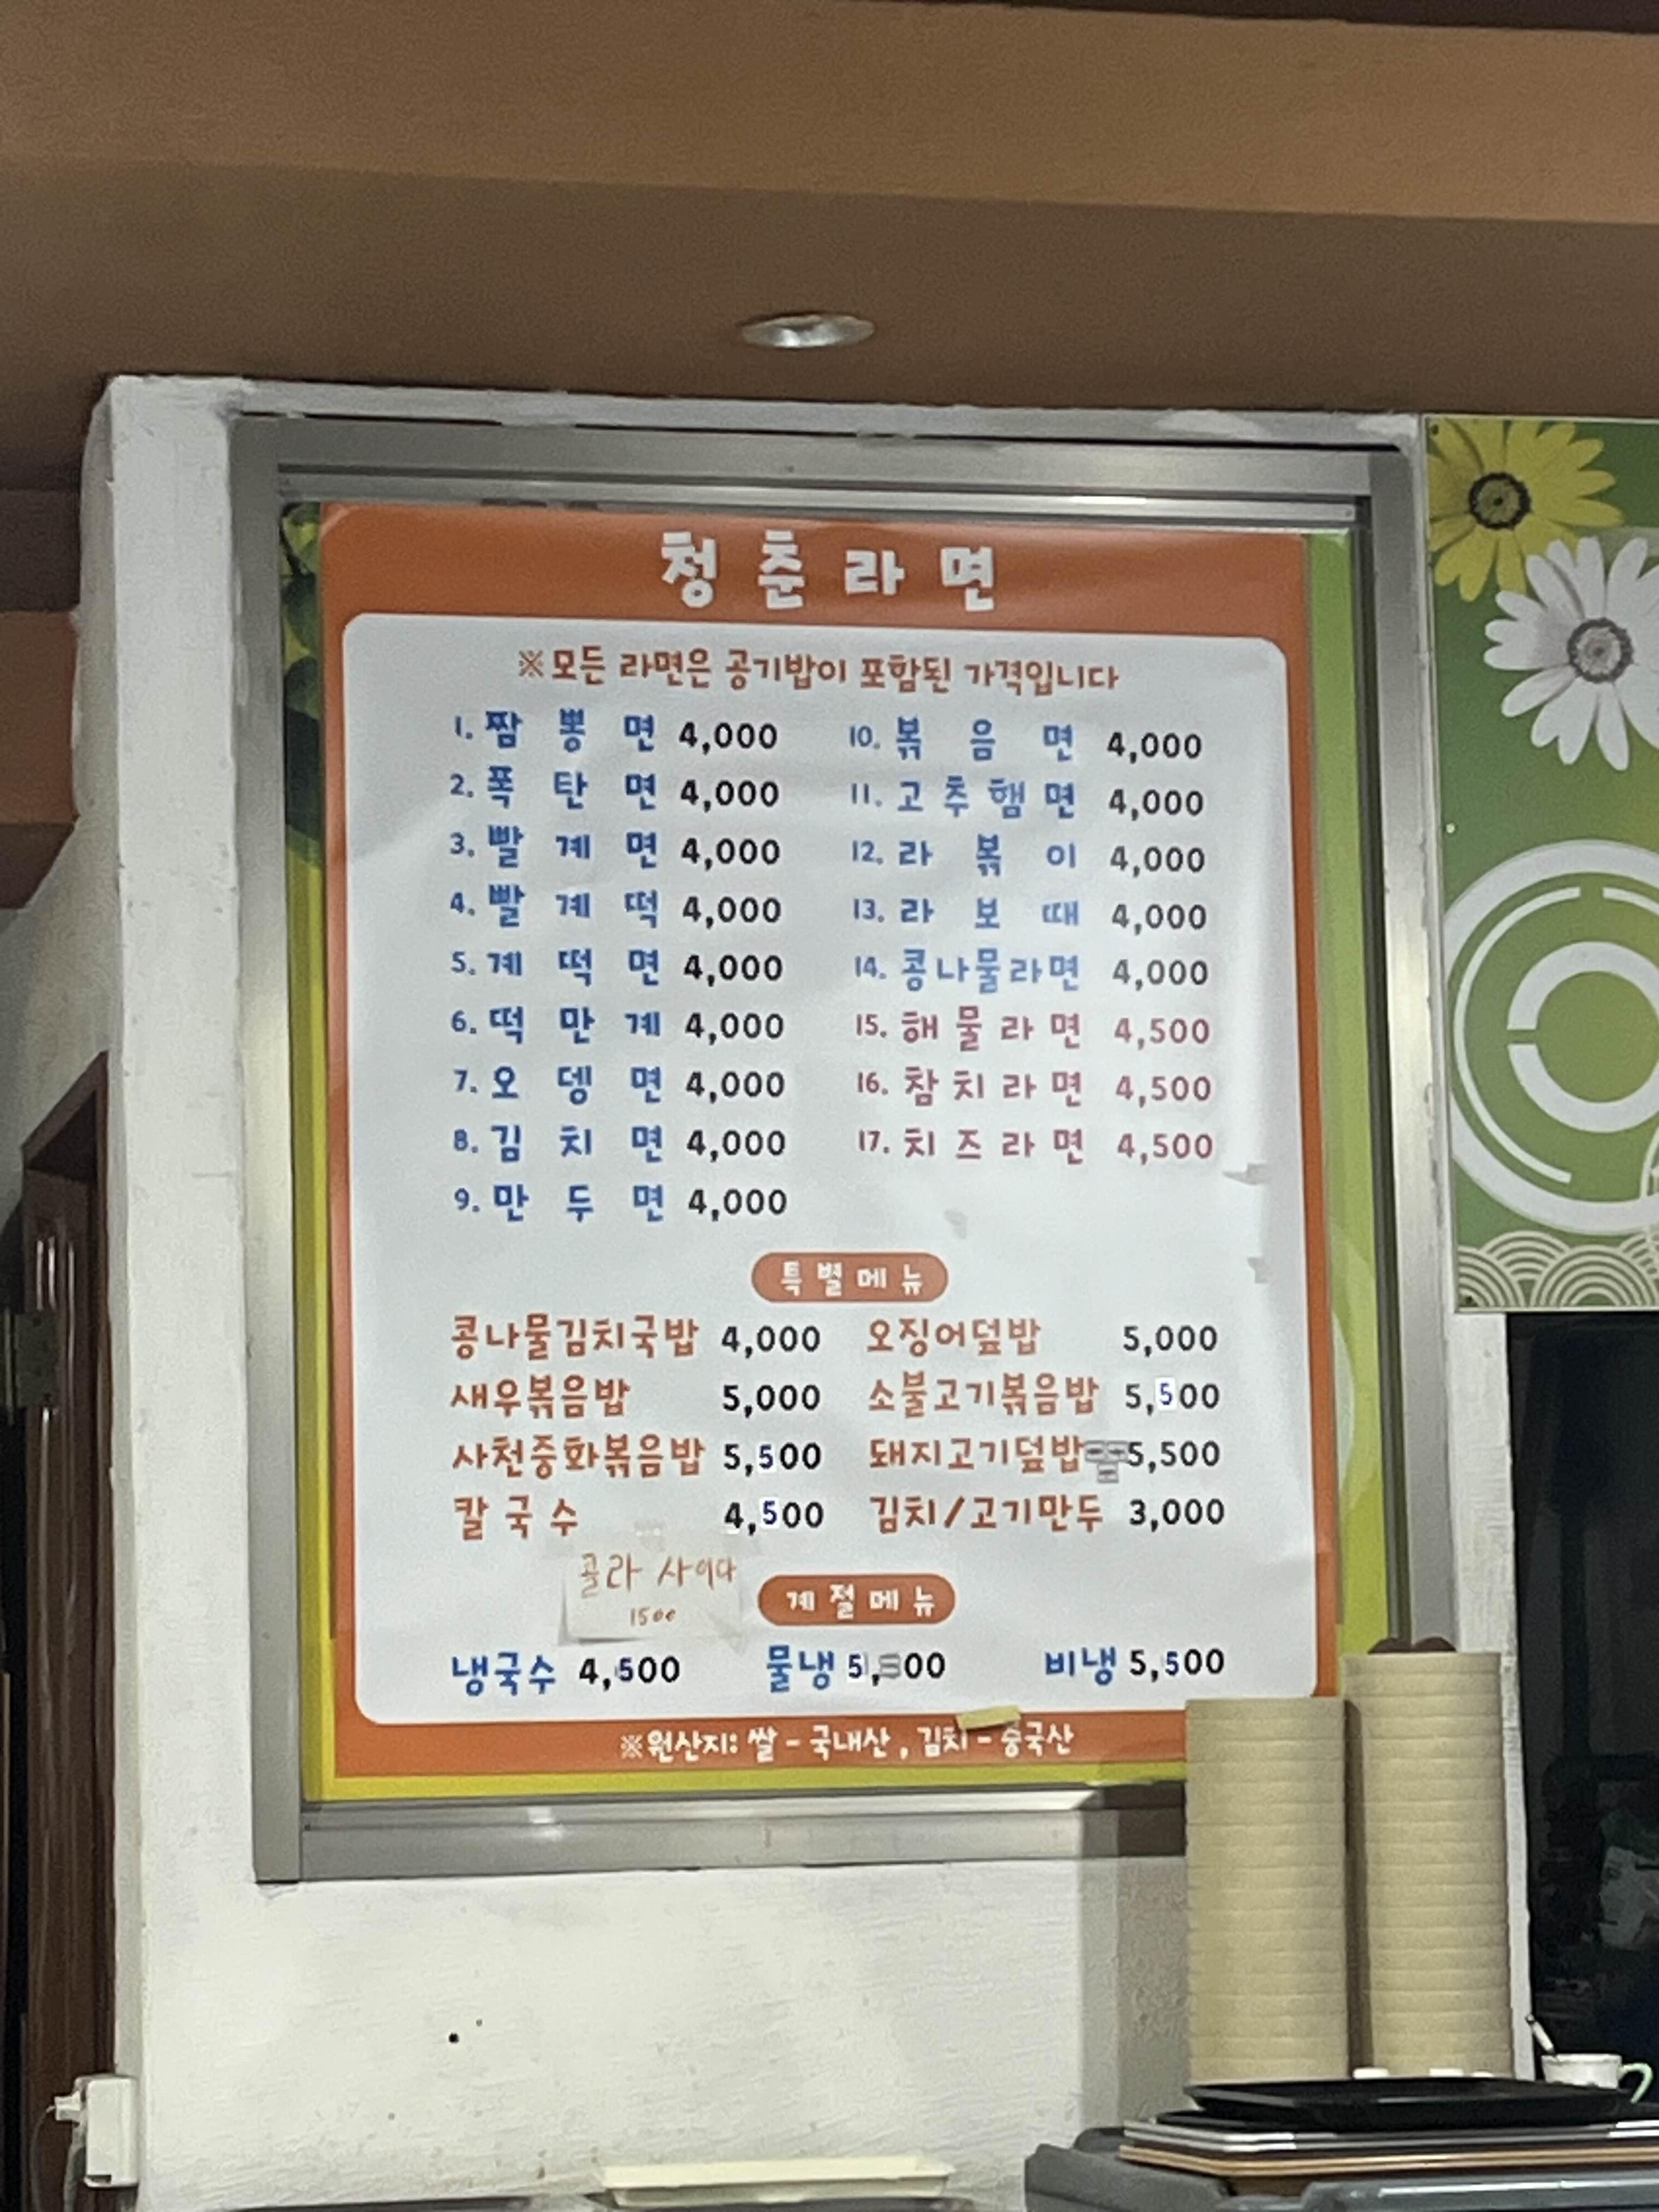 청춘라면
※모든 라면은 공기밥이 포함된 가격입니다
1. 짬뽕면 4,000
2. 폭탄면 4,000
3. 빨계면 4,000
4. 빨계떡 4,000
5. 계떡면 4,000
6. 떡만계 4,000
7. 오뎅면 4,000
8. 김치면 4,000
9. 만두면 4,000
10. 볶음면 4,000
11. 고추햄면 4,000
12. 라볶이 4,000
13. 라보때 4,000
14. 콩나물라면 4,000
15. 해물라면 4,500
16. 참치라면 4,500
17. 치즈라면 4,500
특별메뉴
콩나물김치국밥 4,000
새우볶음밥 5,000
사천중화볶음밥 5,500
칼국수 4,500
오징어덮밥 5,000
소불고기볶음밥 5,500
돼지고기덮밥 5,500
김치/고기만두 3,000
콜라 사이다
1500
계절메뉴
냉국수 4,500 물냉 5,500 비냉 5,500
※원산지: 쌀 - 국내산, 김치 - 중국산